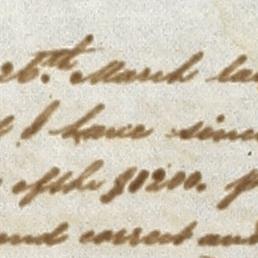 26.th March la
I have sinc
of the $1200.
and correct and